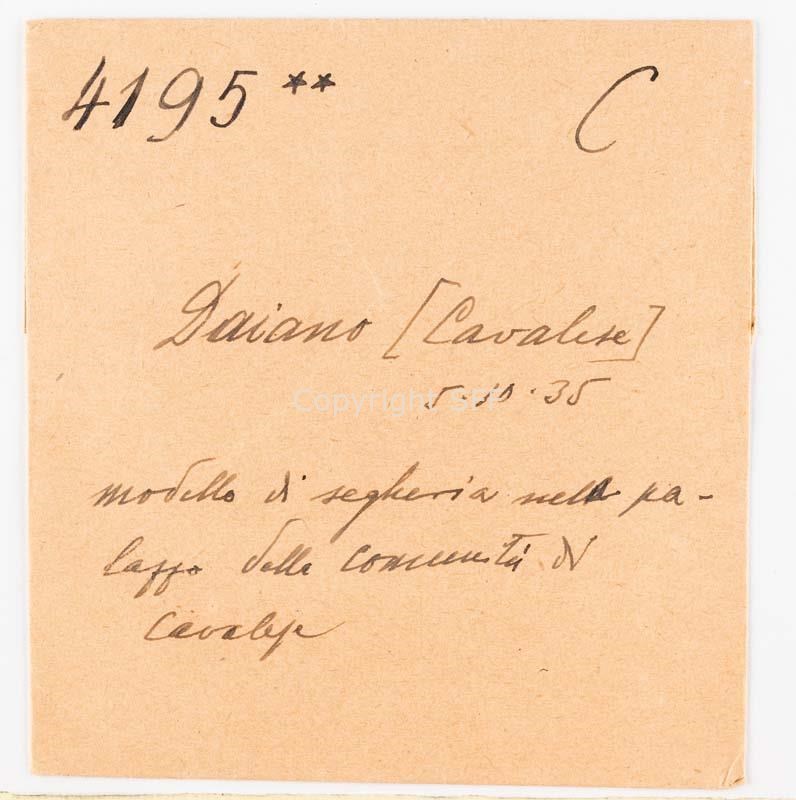 4195 ** C
Daiano [Cavalese]
5.10.35
Copyright SFP
modello di segheria nella pa-
lazzo della comunità di
Cavalese